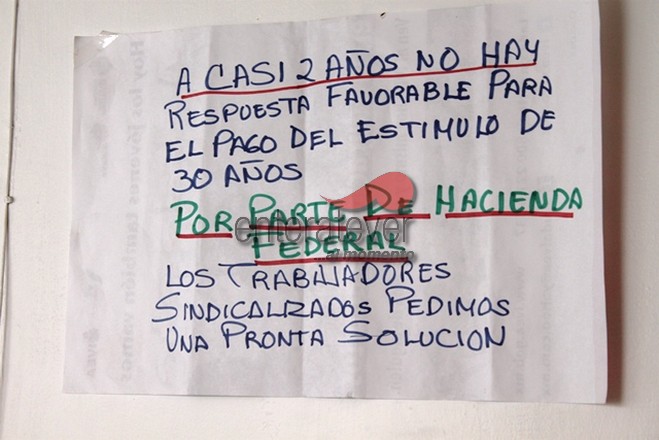 A CASI 2 AÑOS NO HAY
RESPUESTA FAVORABLE PARA
EL PAGO DEL ESTIMULO DE
30 AÑOS
POR PARTE DE HACIENDA
FEDERAL
LOS TRABAJADORES
SINDICALIZADOS PEDIMOS
UNA PRONTA SOLUCION
enteratever
...al momento